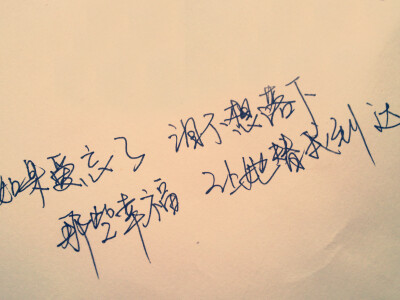 如果爱忘了 泪不想落下
那些幸福 让她替我到达